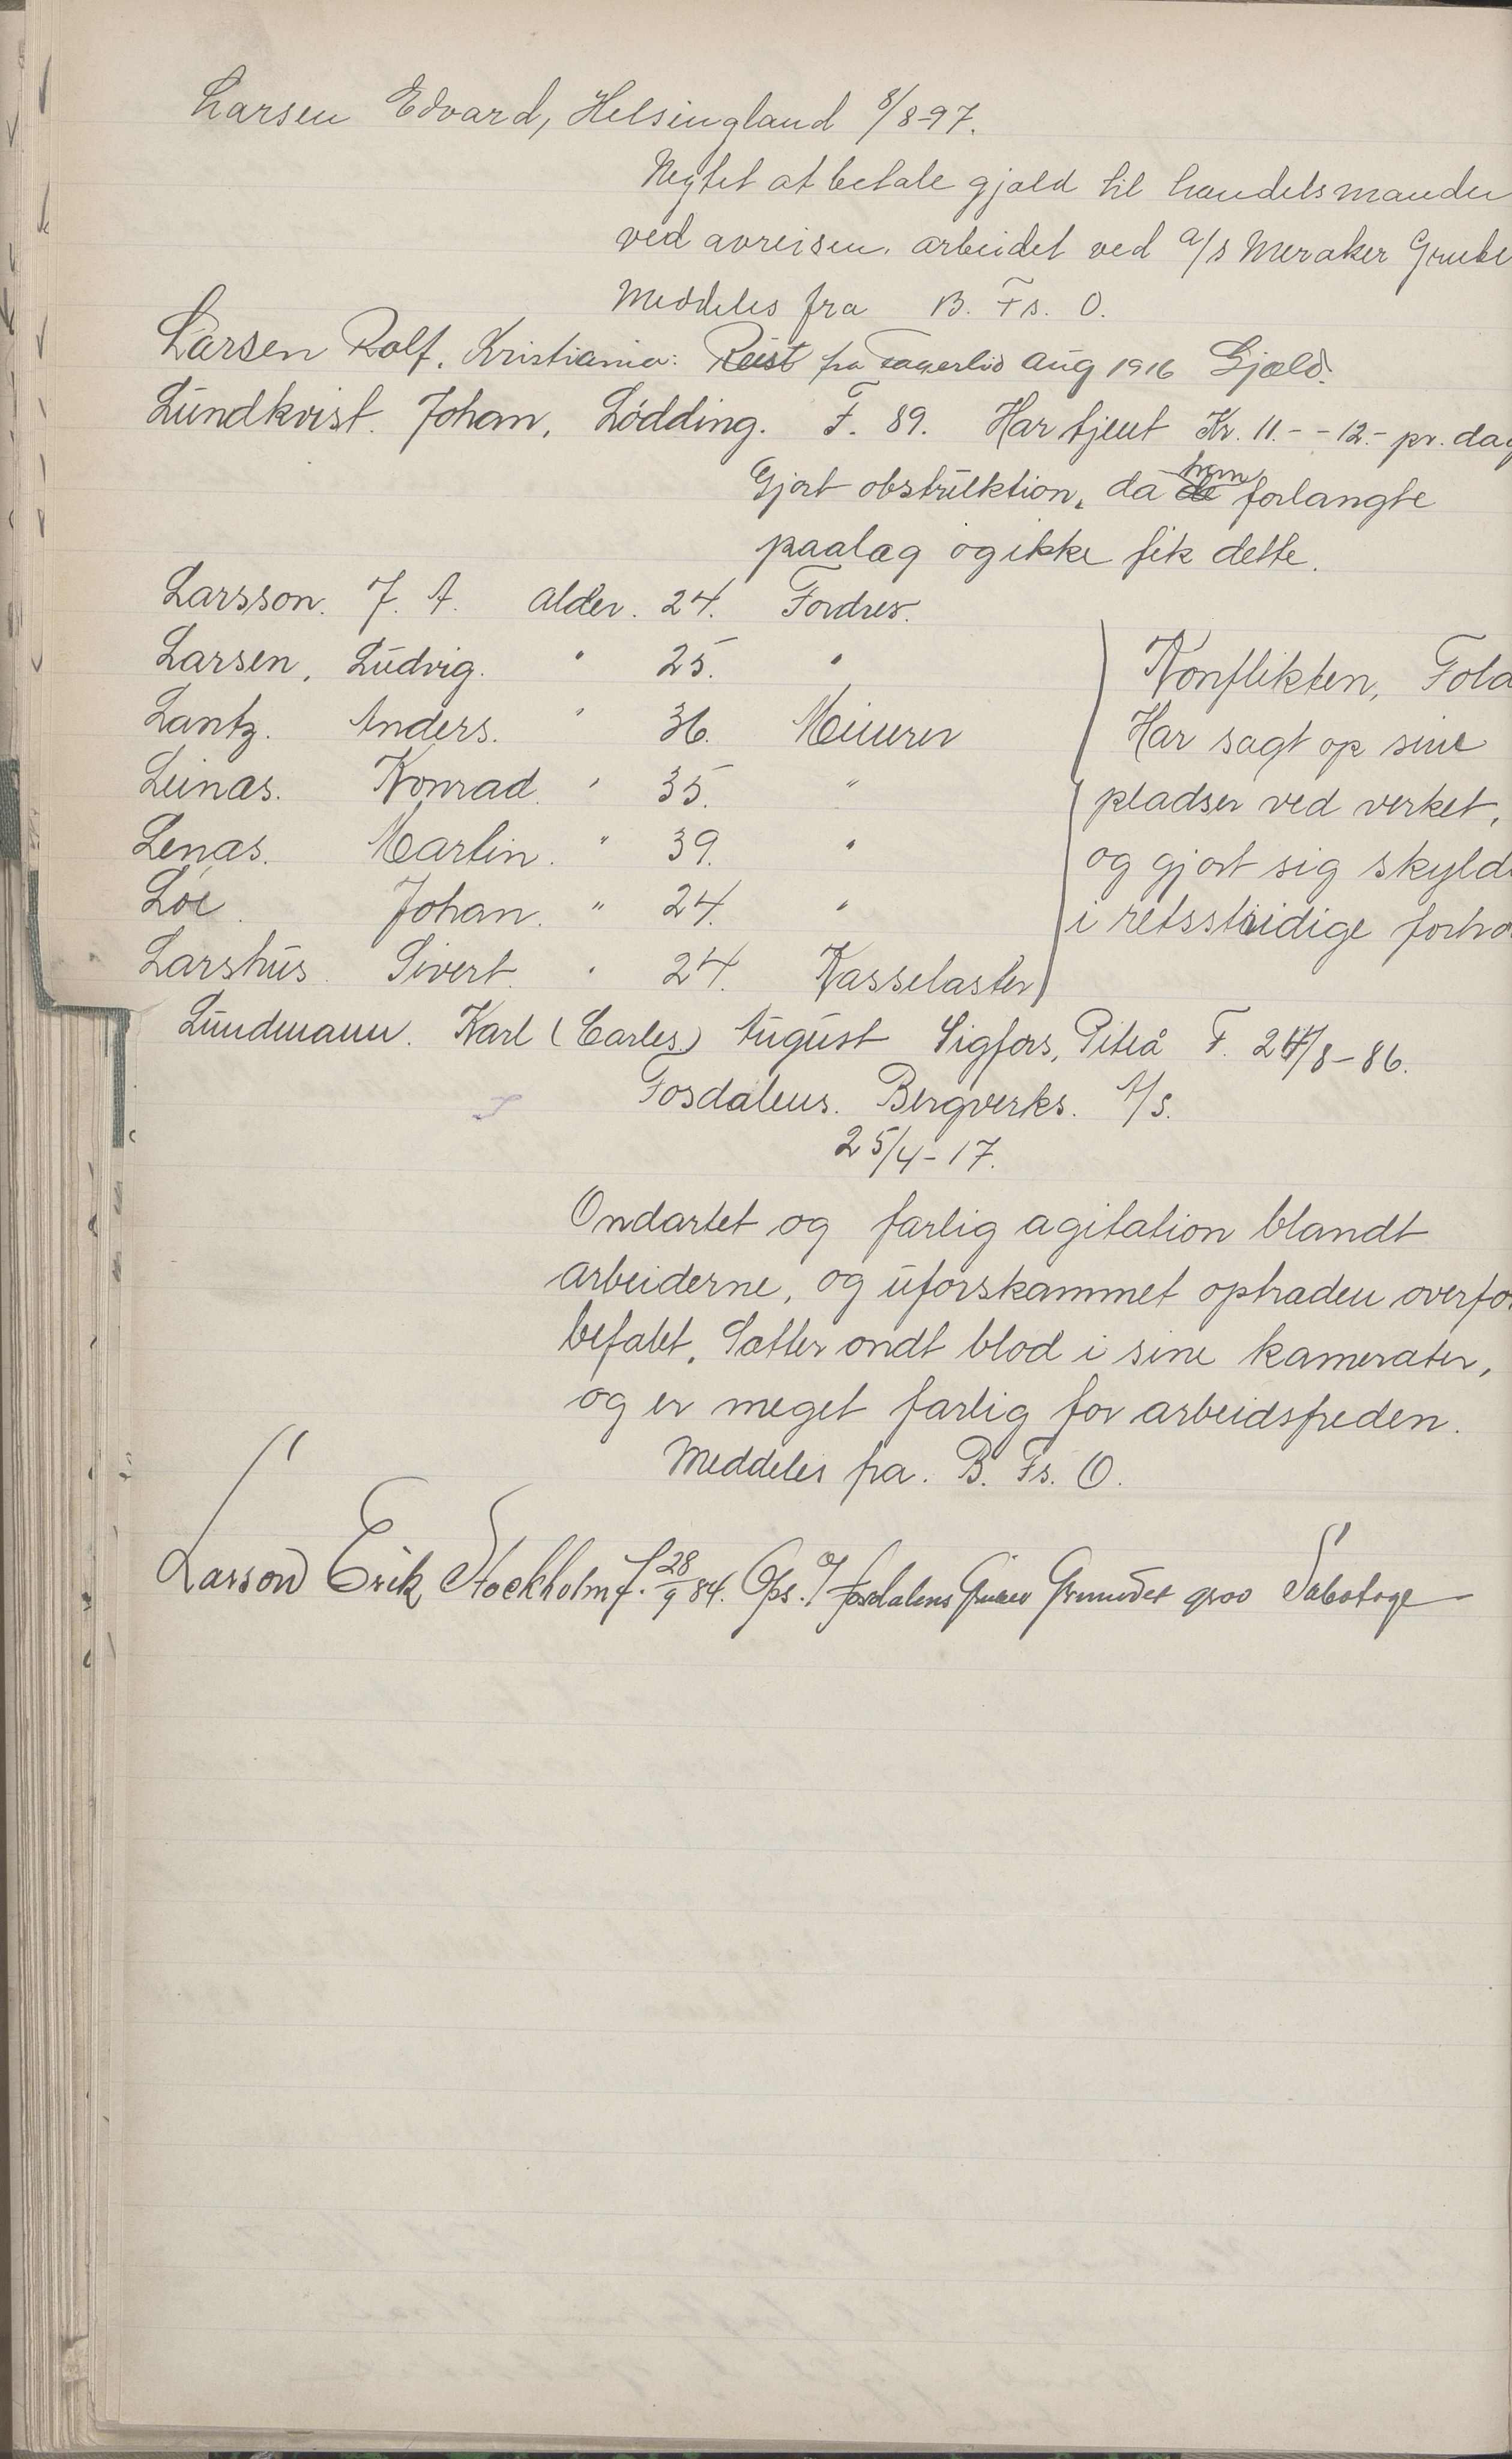 Larsen Edvard, Helsingland 8/8-97.
Negtet at betale gjæld til handelsmanden
ved avreisen. arbeidet ved a/s Meraker Grube
Meddeles fra B. Fs. O.
Larsen Rolf. Kristiania: Reist fra Fagerlid Aug 1916 Gjæld.
Lundkvist. Johan, Lödding. F. 89. Har tjent Kr. 11.- - 12.- pr. dag
Gjort obstruktion, da han forlangte
paalæg og ikke fik dette.
Larsson. J. A. Alder. 24. Fordrer.
Larsen, Ludvig. " 25. "
Lantz. Anders. " 36. Minerer
Leinas. Konrad. " 35. "
Lenas. Martin. " 39. "
Löe. Johan. " 24. "
Larshus. Sivert. " 24. Kasselaster
Konflikten, Folda
Har sagt op sine
pladser ved verket,
og gjort sig skyld
i retsstridige forho
Lundmann. Karl (Carles) August Sigfors, Piteå F. 24/8-86.
Fosdalens. Bergverks. A/S.
25/4-17.
Ondartet og farlig agitation blandt
arbeiderne, og uforskammet optræden overfo
befalet. Sætter ondt blod i sine kamerater,
og er meget farlig for arbeidsfreden.
Meddeles fra. B. Fs. O.
Larson Erik Stockholm f. 28/9 84. Ops. Fosdalens Gruber Grundet grov Sabotage